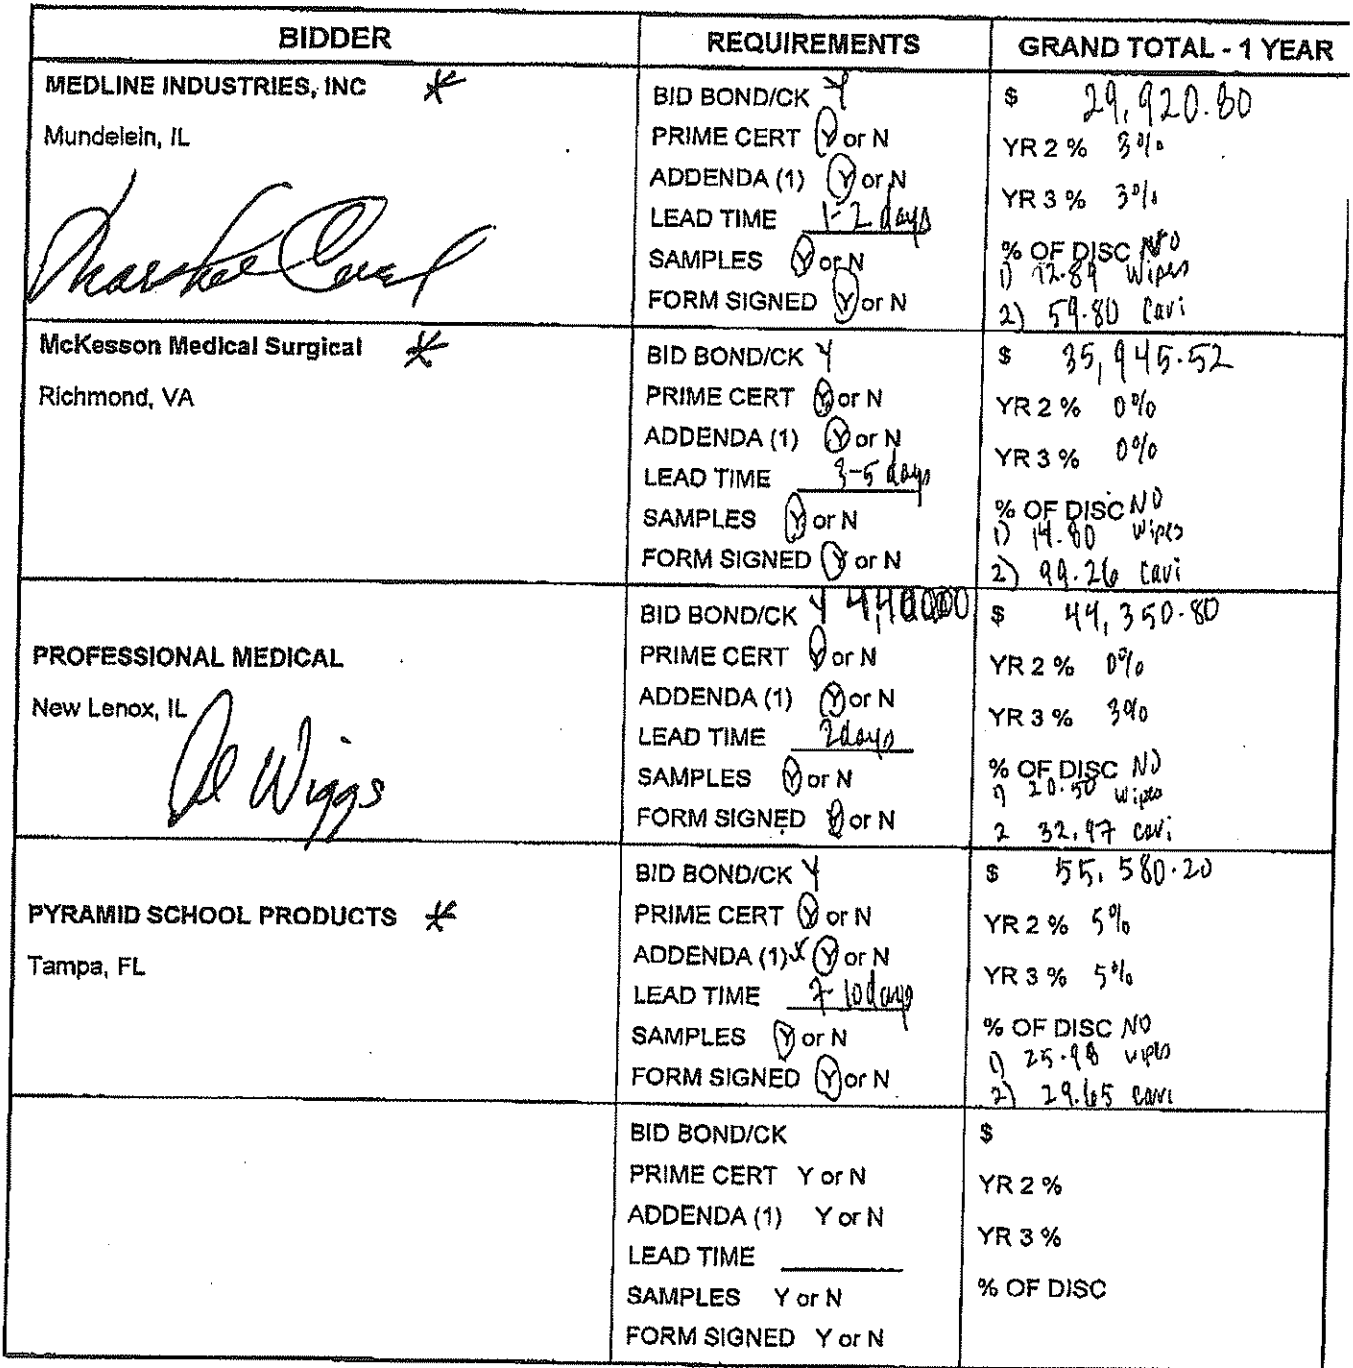 BIDDER REQUIREMENTS GRAND TOTAL - 1 YEAR
MEDLINE INDUSTRIES, INC *
Mundelein, IL
BID BOND/CK Y
PRIME CERT Y or N
ADDENDA (1) Y or N
LEAD TIME 1-2 days
SAMPLES Y or N
FORM SIGNED Y or N
$ 29,920.80
YR 2 % 3%
YR 3 % 3%
% OF DISC NO
1) 12.89 Wipes
2) 59.80 Cavi
McKesson Medical Surgical *
Richmond, VA
BID BOND/CK Y
PRIME CERT Y or N
ADDENDA (1) Y or N
LEAD TIME 3-5 days
SAMPLES Y or N
FORM SIGNED Y or N
$ 35,945.52
YR 2 % 0%
YR 3 % 0%
% OF DISC NO
1) 14.80 Wipes
2) 99.26 Cavi
PROFESSIONAL MEDICAL
New Lenox, IL
Wiggs
BID BOND/CK Y
PRIME CERT Y or N
ADDENDA (1) Y or N
LEAD TIME 2 days
SAMPLES Y or N
FORM SIGNED Y or N
$ 44,350.80
YR 2 % 0%
YR 3 % 3%
% OF DISC NO
1) 20.50 wipes
2 32.97 cavi
PYRAMID SCHOOL PRODUCTS *
Tampa, FL
BID BOND/CK Y
PRIME CERT Y or N
ADDENDA (1) x Y or N
LEAD TIME 7-10 days
SAMPLES Y or N
FORM SIGNED Y or N
$ 55,580.20
YR 2 % 5%
YR 3 % 5%
% OF DISC NO
1) 25.98 wipes
2) 29.65 cavi
BID BOND/CK
PRIME CERT Y or N
ADDENDA (1) Y or N
LEAD TIME
SAMPLES Y or N
FORM SIGNED Y or N
$
YR 2 %
YR 3 %
% OF DISC